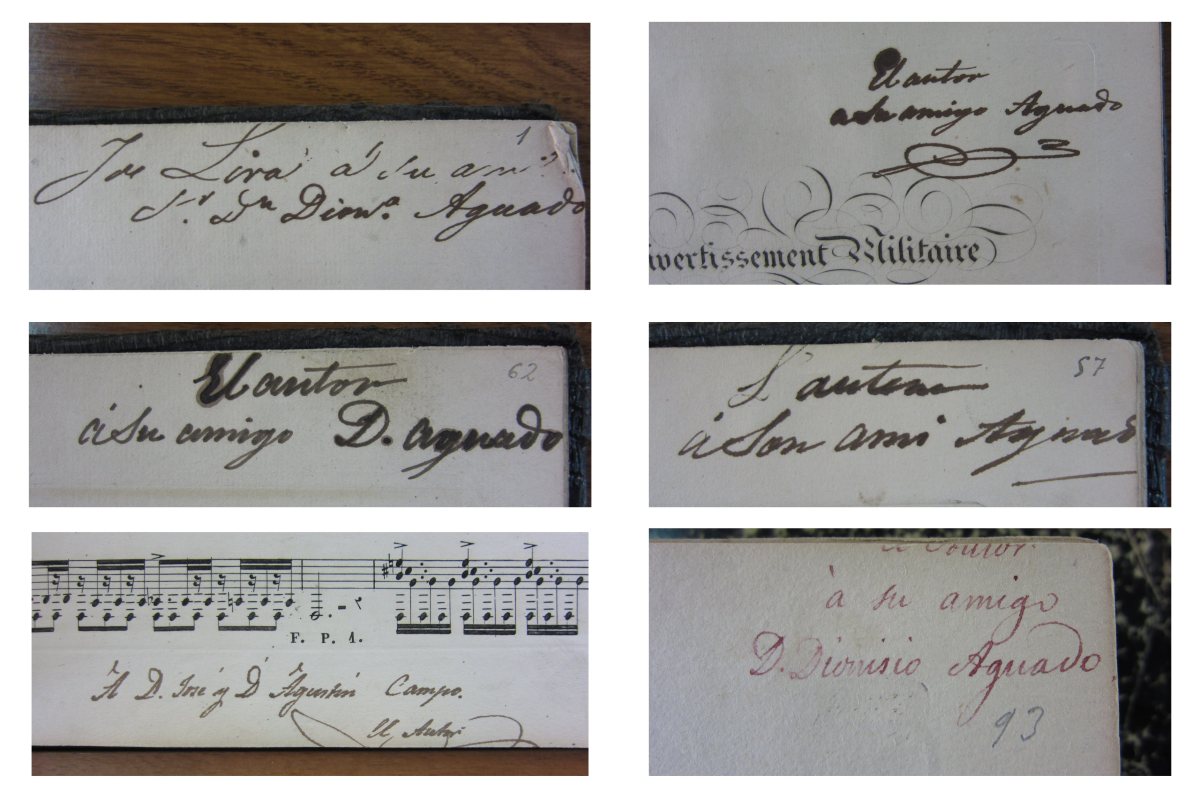 1
Jos Lira á Su am.º
S.r D.n Dion.º Aguado
El autor
a Su amigo Aguado
ivertissement Militaire
62
El autor
á Su amigo D. aguado
57
L'auteur
á Son ami Aguad
F. P. 1.
A D. José y D Agustin Campo.
El Autor
à su amigo
D. Dionisio Aguado.
93